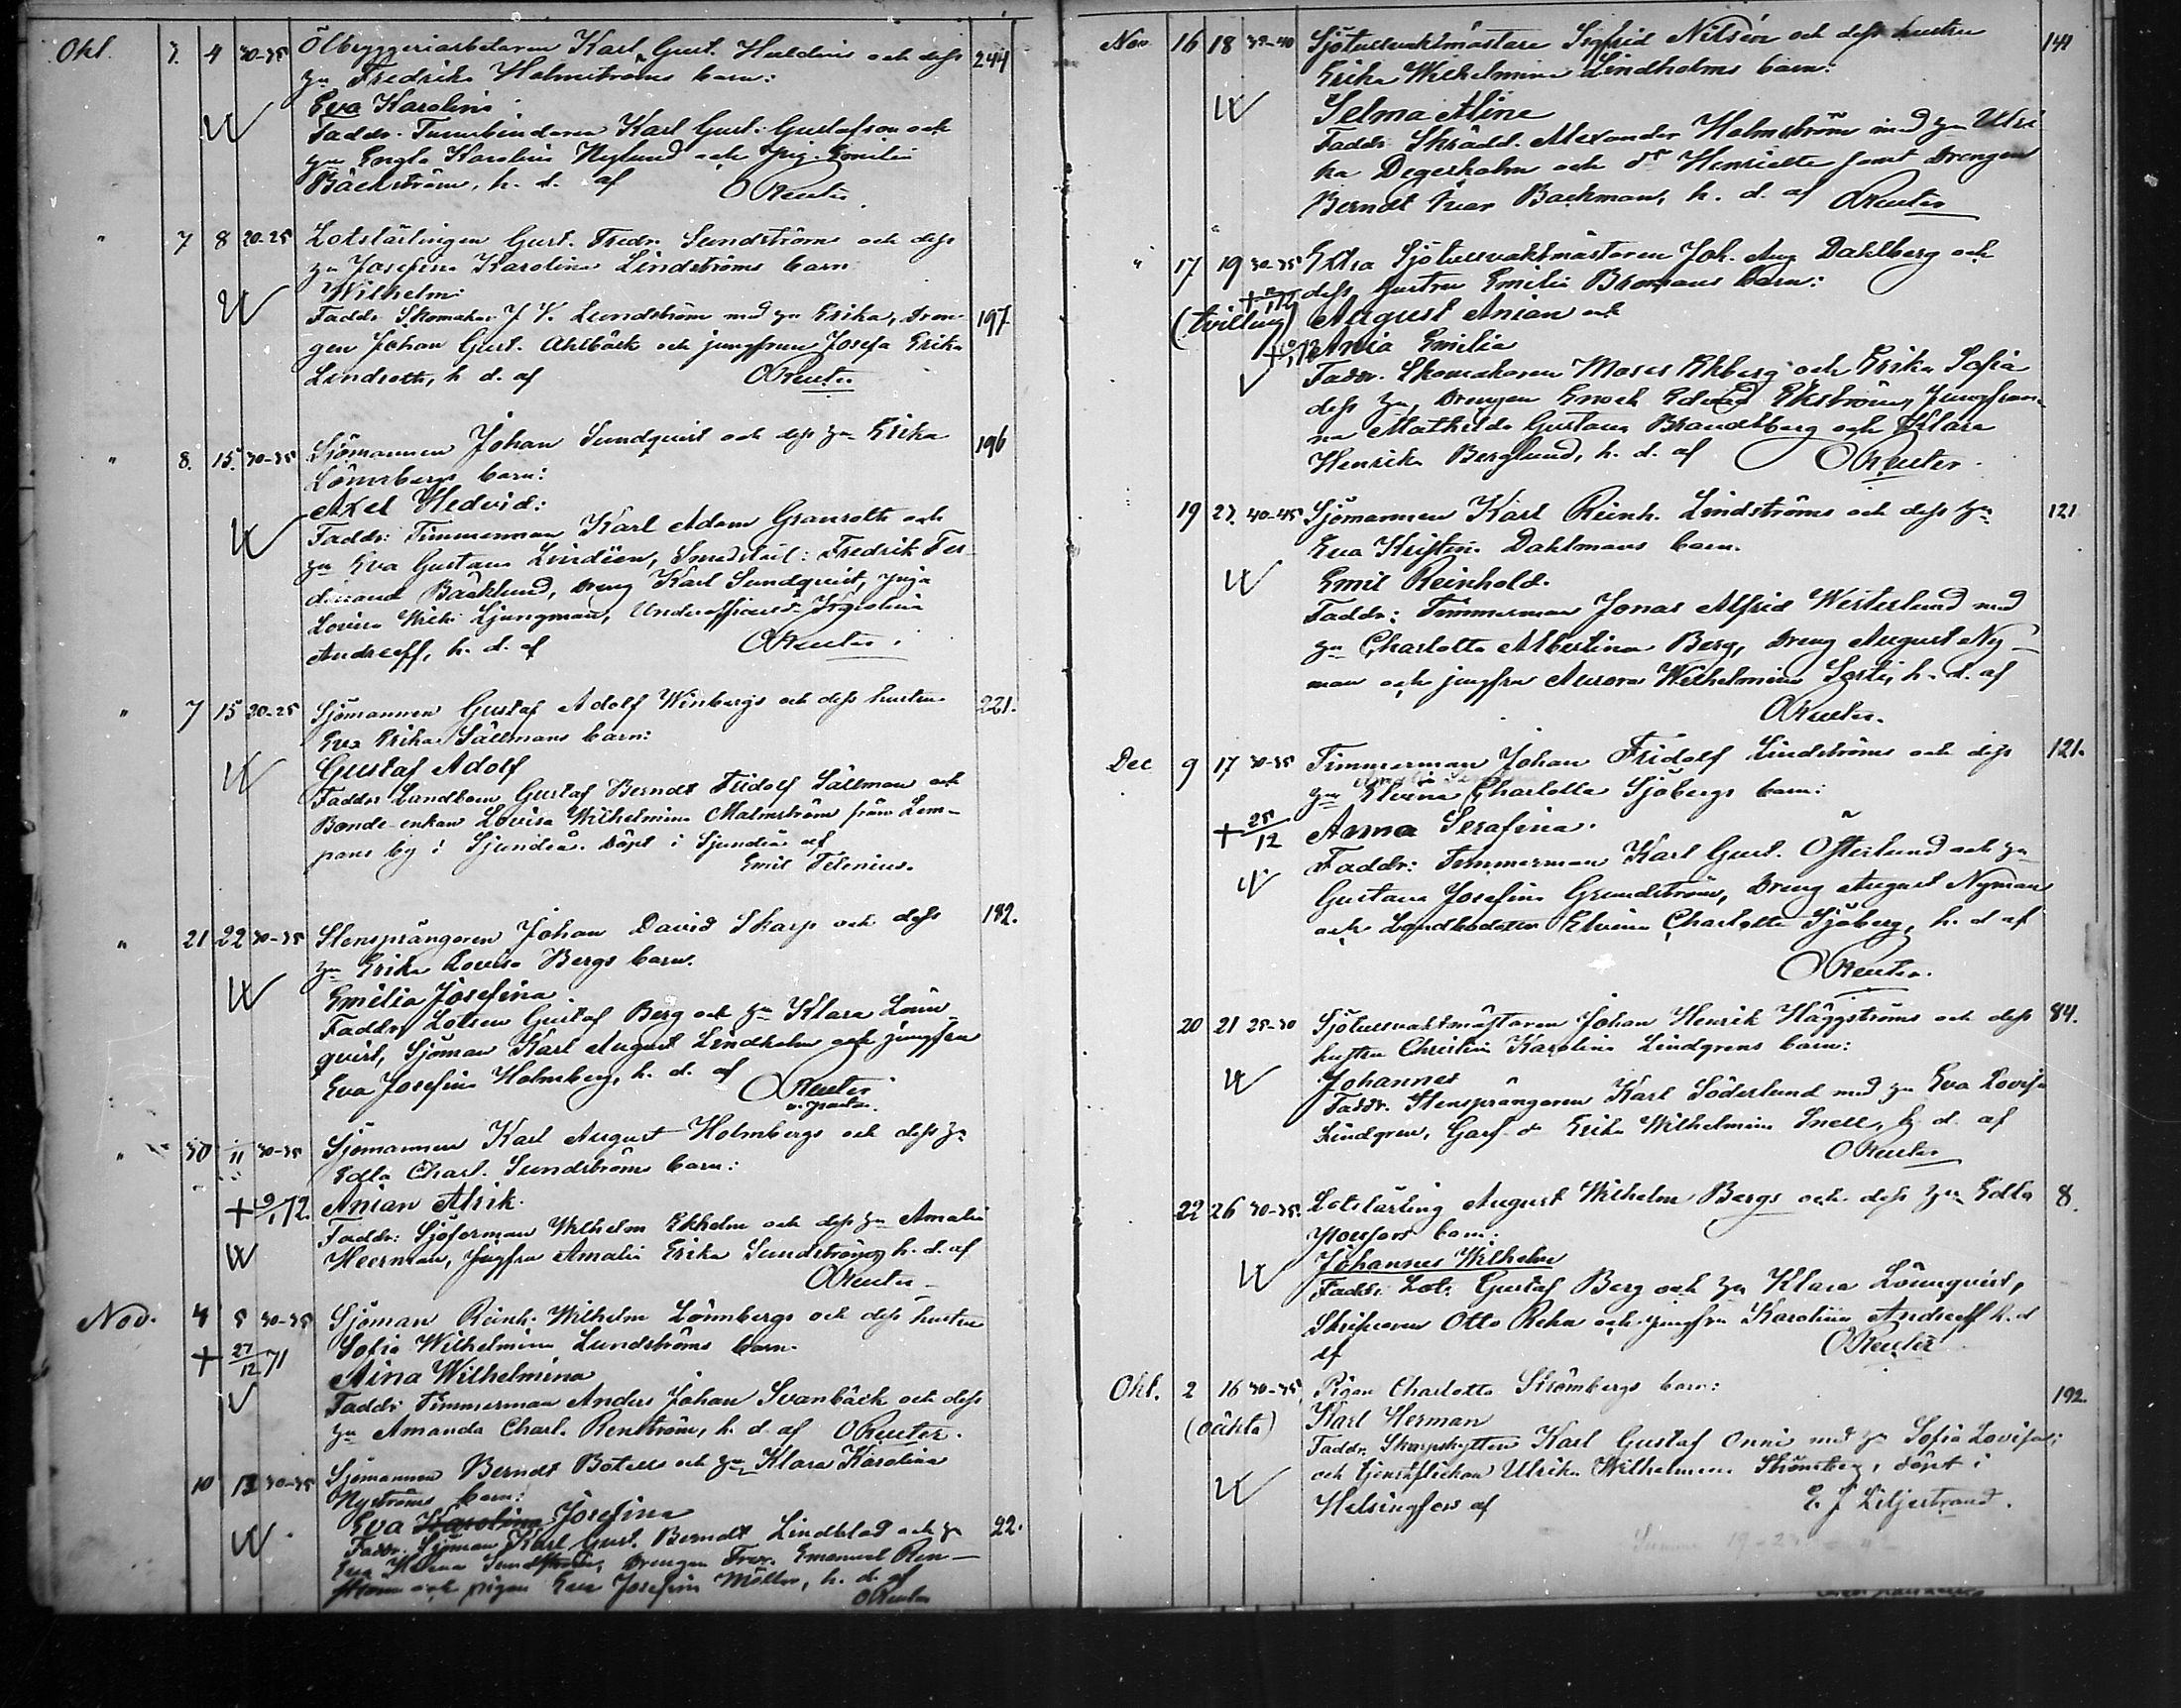 Okt. 3. 4 30-35 Ölbryggeriarbetaren Karl Gust. Huldins och dess 244
hu Fredrika Holmströms barn:
Eva Karolina
Faddr. Tunnbindaren Karl Gust. Gustafson och
hu Engla Karolina Nylund och pig. Emilia
Bäckström, h. d. af OReuter.
" 7 8 20-25 Lotslärlingen Gust. Fredr. Sundströms och dess
hu Josefina Karolina Lindströms barn
Wilhelm: 197
Faddr. Skomakar J. V. Lundström med hu Erika, dren-
gen Johan Gust. Ahlbäck och jungfrun Josefa Erika
Lindroth, h. d. af OReuter
" 8. 15. 30-35 Sjömannen Johan Sundquist och dess hu Erika 196
Lönnbergs barn:
Axel Hedvid:
Faddr: Timmerman Karl Adam Granroth och
hu Eva Gustava Lindéen, Fredrik Fer-
dinand Bäcklund, dreng Karl Sundquist, piga
Lovisa Ljungman, Underofficersd. Karolina
Andreeff, h. d. af OReuter.
" 7 15 20-25 Sjömannen Gustaf Adolf Winbergs och dess hustru 221.
Eva Erika Sällmans barn:
Gustaf Adolf
Faddr Landtbon. Gustaf Berndt Fridolf Sällman och
Bonde-enkan Lovisa Wilhelmina Malmström från Lem-
pans by i Sjundeå. Döpt i Sjundeå af
Emil Felenius.
" 21 22 30-35 Stensprängaren Johan David Skarp och dess 182.
hu Erika Lovisa Bergs barn.
Emilia Josefina.
Faddr. Lotsen Gustaf Berg och hu Klara Lönn-
quist, Sjöman Karl August Lindholm och jungfru
Eva Josefina Holmberg, h. d. af OReuter
v. pastor.
" 30 11 30-35 Sjömannen Karl August Holmbergs och dess hu
Edla Charl. Sundströms barn:
+ 9/1 72. Anian Alrik.
Faddr: Sjöforman Wilhelm Ekholm och dess hu Amalia
Heerman, Jungfru Amalia Erika Sundström, h. d. af
OReuter
Nov. 4 5 30-35 Sjöman Reinh. Wilhelm Lönnbergs och dess hustru
+ 27/12 71 Sofia Wilhelmina Lundströms barn.
Aina Wilhelmina
Faddr. Timmerman Anders Johan Svanbäck och dess
hu Amanda Charl. Renström, h. d. af OReuter.
10 12 30-35 Sjömannen Berndt Botells och hu Klara Karolina
Nyströms barn:
Eva Karolina Josefina 22.
Faddr. Sjöman Karl Gust. Berndt Lindblad och hu
Eva Helena Sundström, drengen Fredr. Emanuel Ren-
ström och pigan Eva Josefina Möller, h. d. af
OReuter
Nov. 16 18 35-40 Sjötullvaktmästare Sigfrid Nilsén och dess hustru 141
Erika Wilhelmina Lindholms barn:
Selma Aline
Faddr. Skrädd. Alexander Holmström med hu Ulri-
ka Degerholm och dr Henriette samt Drengen
Berndt Ivar Backman, h. d. af OReuter
" 17 19 30-35 Extra Sjötullvaktmästaren Joh. Aug. Dahlberg och
dess hustru Emilia Bromans barn:
(tvilling) August Anian och
Ania Emilia
Faddr. Skomakaren Moses Ekberg och Erika Sofia
dess hu, drengen Enoch Edvard Ekström, Jungfrur-
na Mathilda Gustava Brandtberg och Klara
Henrika Berglund, h. d. af OReuter
19 23. 40-45 Sjömannen Karl Reinh. Lindströms och dess hu 121
Eva Kristina Dahlmans barn.
Emil Reinhold.
Faddr: Timmerman Jonas Alfrid Westerlund med
hu Charlotta Albertina Berg, Dreng August Ny-
man och jungfru Aurora Wilhelmina h. d. af
OReuter.
Dec 9 17 30-35 Timmerman Johan Fridolf Lindströms och dess 121.
hu Elvina Charlotta Sjöbergs barn:
+ 25/12 Anna Serafina.
Faddr: Timmerman Karl Gust. Österlund och hu
Gustava Josefina Grundström, Dreng August Nyman
och Landtbodotter Elvina Charlotta Sjöberg, h. d. af
OReuter.
20 21 25-30 Sjötullvaktmästaren Johan Henrik Häggströms och dess 84.
hustru Christina Karolina Lindgrens barn:
Johannes
Faddr. Stensprängaren Karl Söderlund med hu Eva Lovisa
Lindgren, Garf. d. Erika Wilhelmina Snell, h. d. af
OReuter
22 26 30-35. Lotslärling August Wilhelm Bergs och dess hu Edla 8.
barn:
Johannes Wilhelm
Faddr. Lots. Gustaf Berg och hu Klara Lönnquist,
Skrifvaren Otto Rehn och jungfru Karolina Andreeff h. d
af OReuter
Okt. 2 16 30-35 Pigan Charlotta Strömbergs barn: 192.
(oäkta) Karl Herman
Faddr. Skarpskytten Karl Gustaf Onni med hu Sofia Lovisa;
och tjenstflickan Ulrika Wilhelmina Strömberg, döpt i
Helsingfors af E. J. Liljestrand.